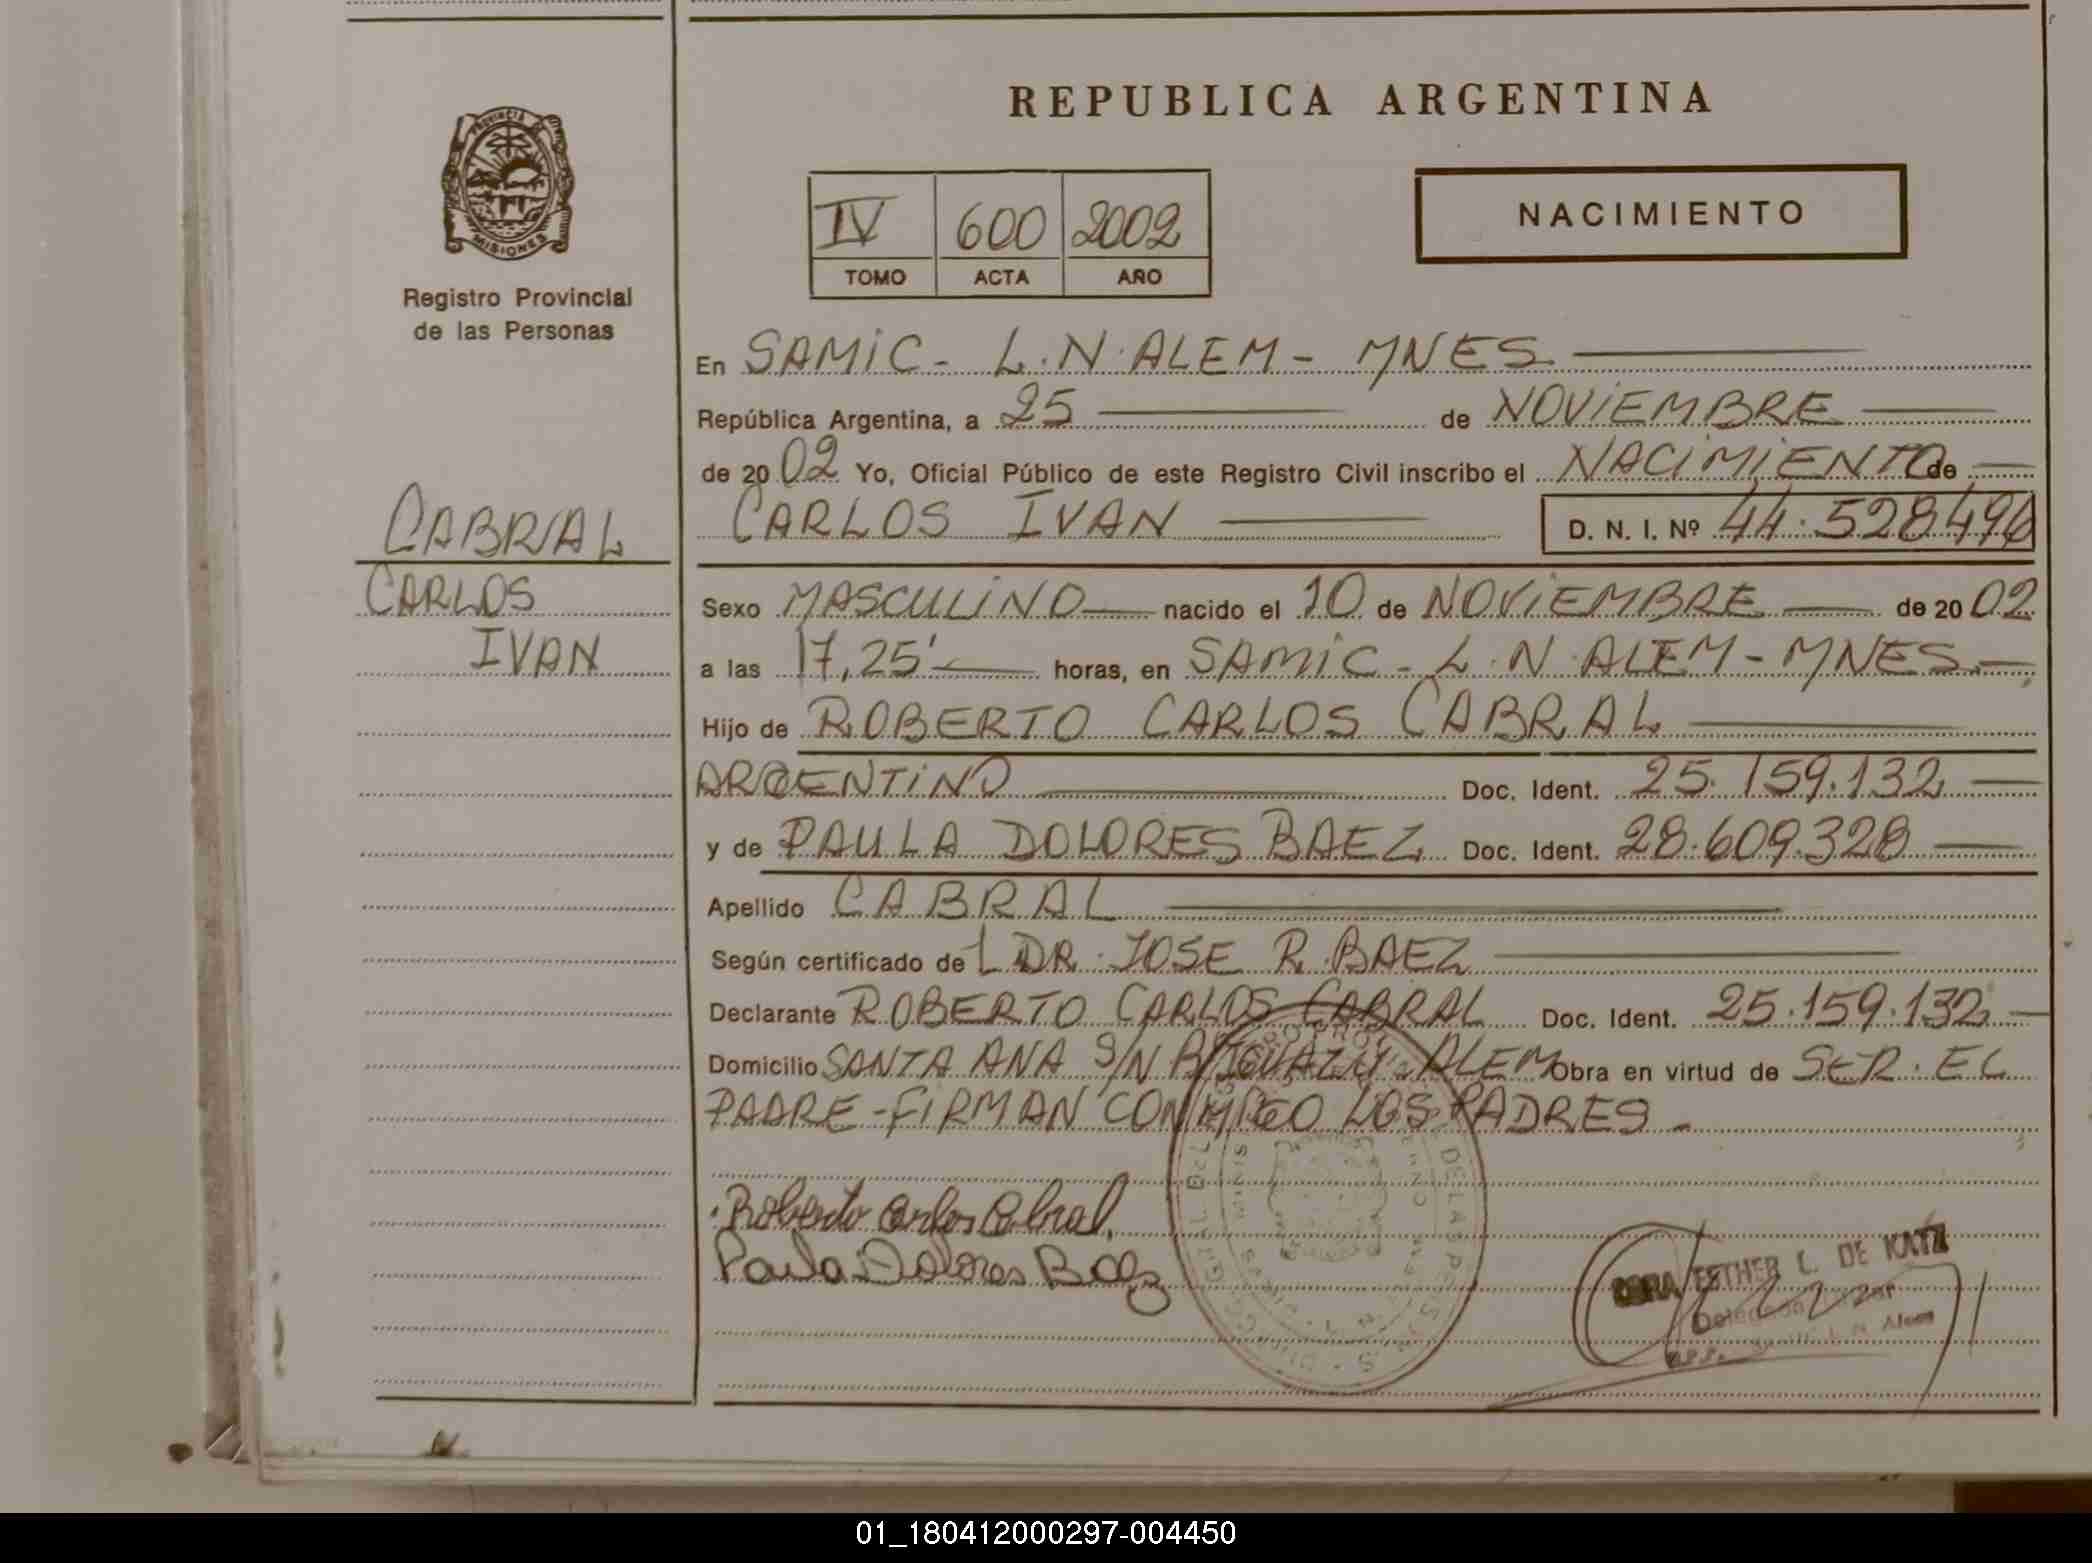 REPUBLICA ARGENTINA
PROVINCIA DE
MISIONES
Registro Provincial
de las Personas
IV 600 2002
TOMO ACTA AÑO
NACIMIENTO
En SAMIC - L.N. ALEM - MNES
República Argentina, a 25 de NOVIEMBRE
de 2002 Yo, Oficial Público de este Registro Civil inscribo el NACIMIENTO de
CARLOS IVAN D. N. I. Nº 44.528.496
CABRAL
CARLOS
IVAN
Sexo MASCULINO nacido el 10 de NOVIEMBRE de 2002
a las 17,25' horas, en SAMIC - L.N. ALEM - MNES.
Hijo de ROBERTO CARLOS CABRAL
ARGENTINO Doc. Ident. 25.159.132
y de PAULA DOLORES BAEZ Doc. Ident. 28.609.328
Apellido CABRAL
Según certificado del DR. JOSE R. BAEZ
Declarante ROBERTO CARLOS CABRAL Doc. Ident. 25.159.132
Domicilio SANTA ANA S/N Bº IGUAZU ALEM Obra en virtud de SER EL
PADRE - FIRMAN CONMIGO LOS PADRES -
Roberto Carlos Cabral
Paula Dolores Baez
ESTHER L. DE KATZ
L. N. Alem
01_180412000297-004450